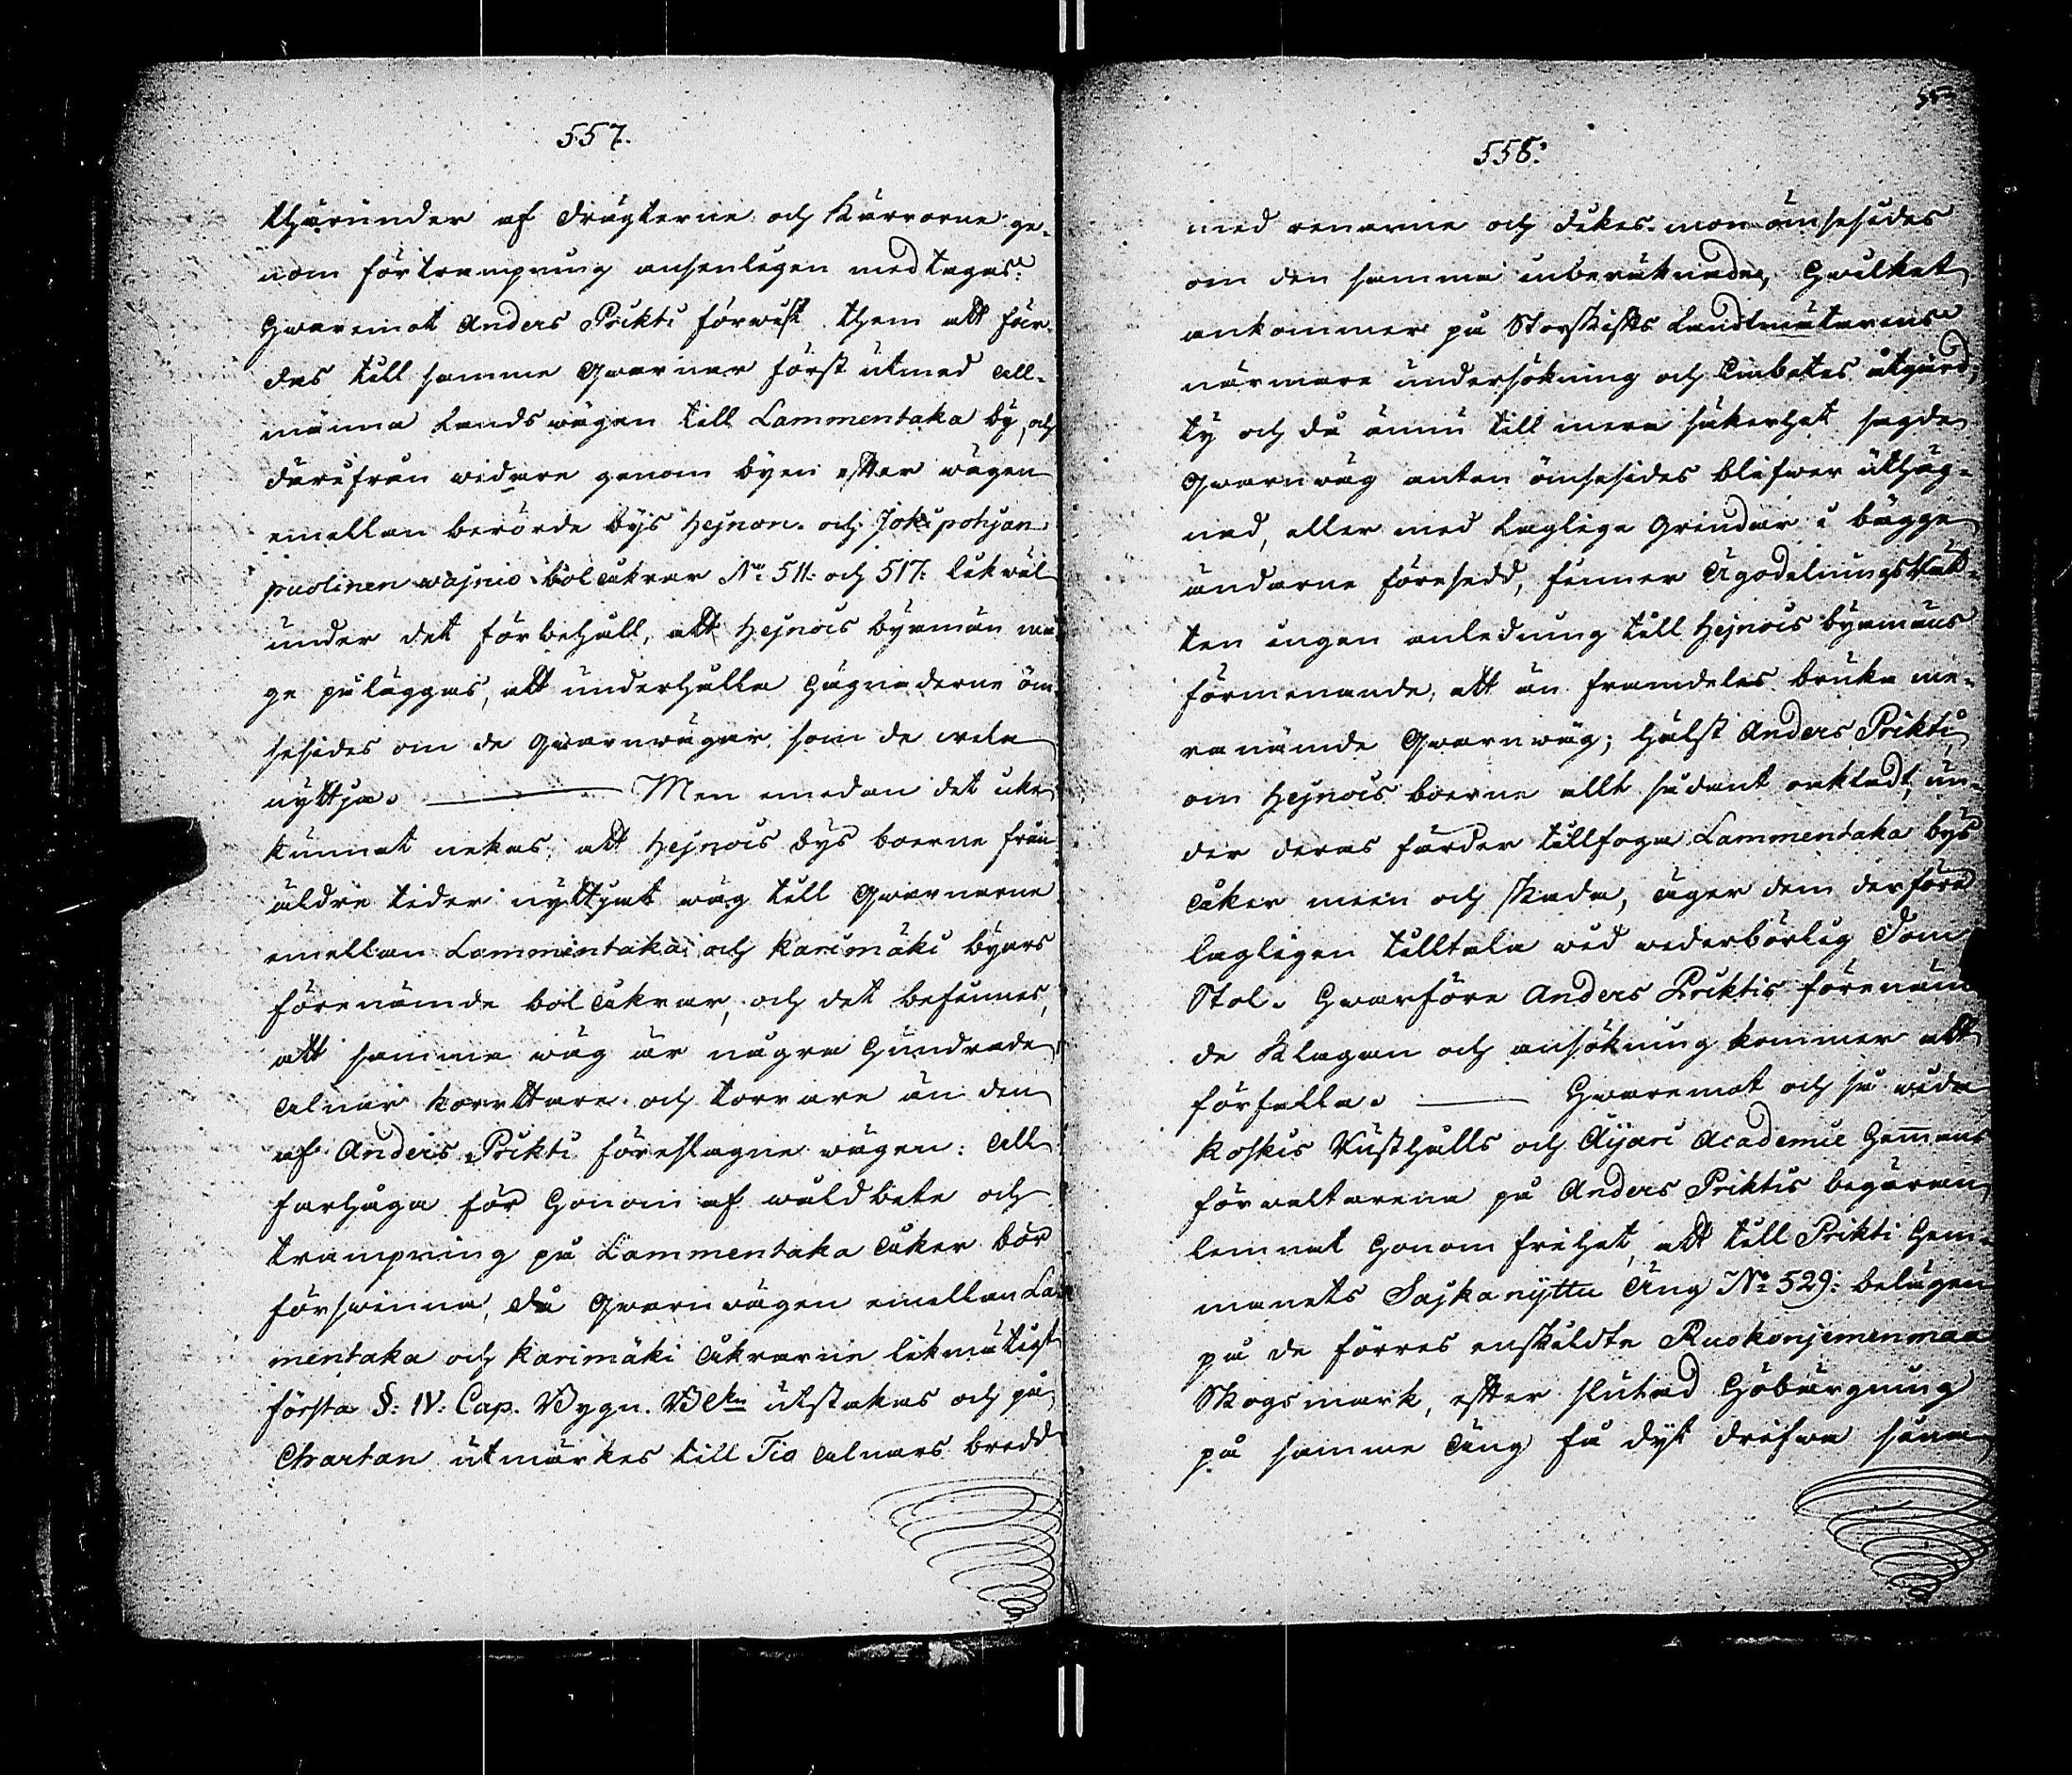 557.
thärunder af dragterne och kärrorne ge-
nom förtrampning ansenligen medtages:
hwaremot Anders Prikti förwist them att fär-
das till samme qwarnar först utmed all-
männa Landswägen till Lammentaka by, och
därifrån widare genom byen efter wägen
emellan berörde bys Hejnon- och Jokipohjan-
puolinen wajnio bolåkrar No 511: och 517: likwäl
under det förbehåll, att Hejnois byamän må
ge påläggas, att underhålla hägnaderne öm-
sesides om de qwarnwägar, som de wela
nyttja. ——— Men emedan det icke
kunnat nekas, att Hejnois bys boerne från
äldre tider nyttjat wäg till qwarnarne
emellan Lammentaka och Karimäki byars
förenämde bolåkrar, och det befinnes,
att samma wäg är några hundrade
alnar korrttare och torrare än den
af Anders Prikti föreslagne wägen: All
farhåga för honom af wåldbete och
trampning på Lammentaka åker bör
förswinna, då qwarnwägen emellan Lam-
mentaka och Karimäki åkrarne likmätigt
första §: IV: Cap. Bygn. Blkn utstakas och på
Chartan utmärkes till Tio alnars bredd
558.
med renarne och dikes-mon ömsesides
om den samma inberäknade, hwilket
ankommer på Storskifts Landtmätarens
närmare undersökning och Embetes åtgärd;
ty och då ännu till mera säkerhet sagde
qwarnwäg antin ömsesides blifwer uthäg-
nad, eller med laglige Grindar i bägge
ändarne försedd, finner Ägodelningsrät-
ten ingen anledning till Hejnois byamäns
förmenande, att än framdeles bruka me-
ranämde qwarnwäg; hälst Anders Prikti,
om Hejnois boerne allt sådant oaktadt, un-
der deras färder tillfoga Lammentaka bys
åker mein och skada, äger dem derföre
lagligen tilltala wid wederbörlig Dom-
Stol. Hwarföre Anders Priktis förenäm-
de klagan och ansökning kommer att
förfalla. ——— Hwaremot och så wida
Koskis Rusthålls och Äijäri Academie Hemmans
förwaltarena på Anders Priktis begäran
lemnat honom frihet, att till Prikti Hem-
manets Sajkanyttu Äng No 529: belägen
på de förres enskildte Ruokonjemenmaa
Skogsmark, efter slutad Höbärgning
på samme äng få dyt drifwa sina